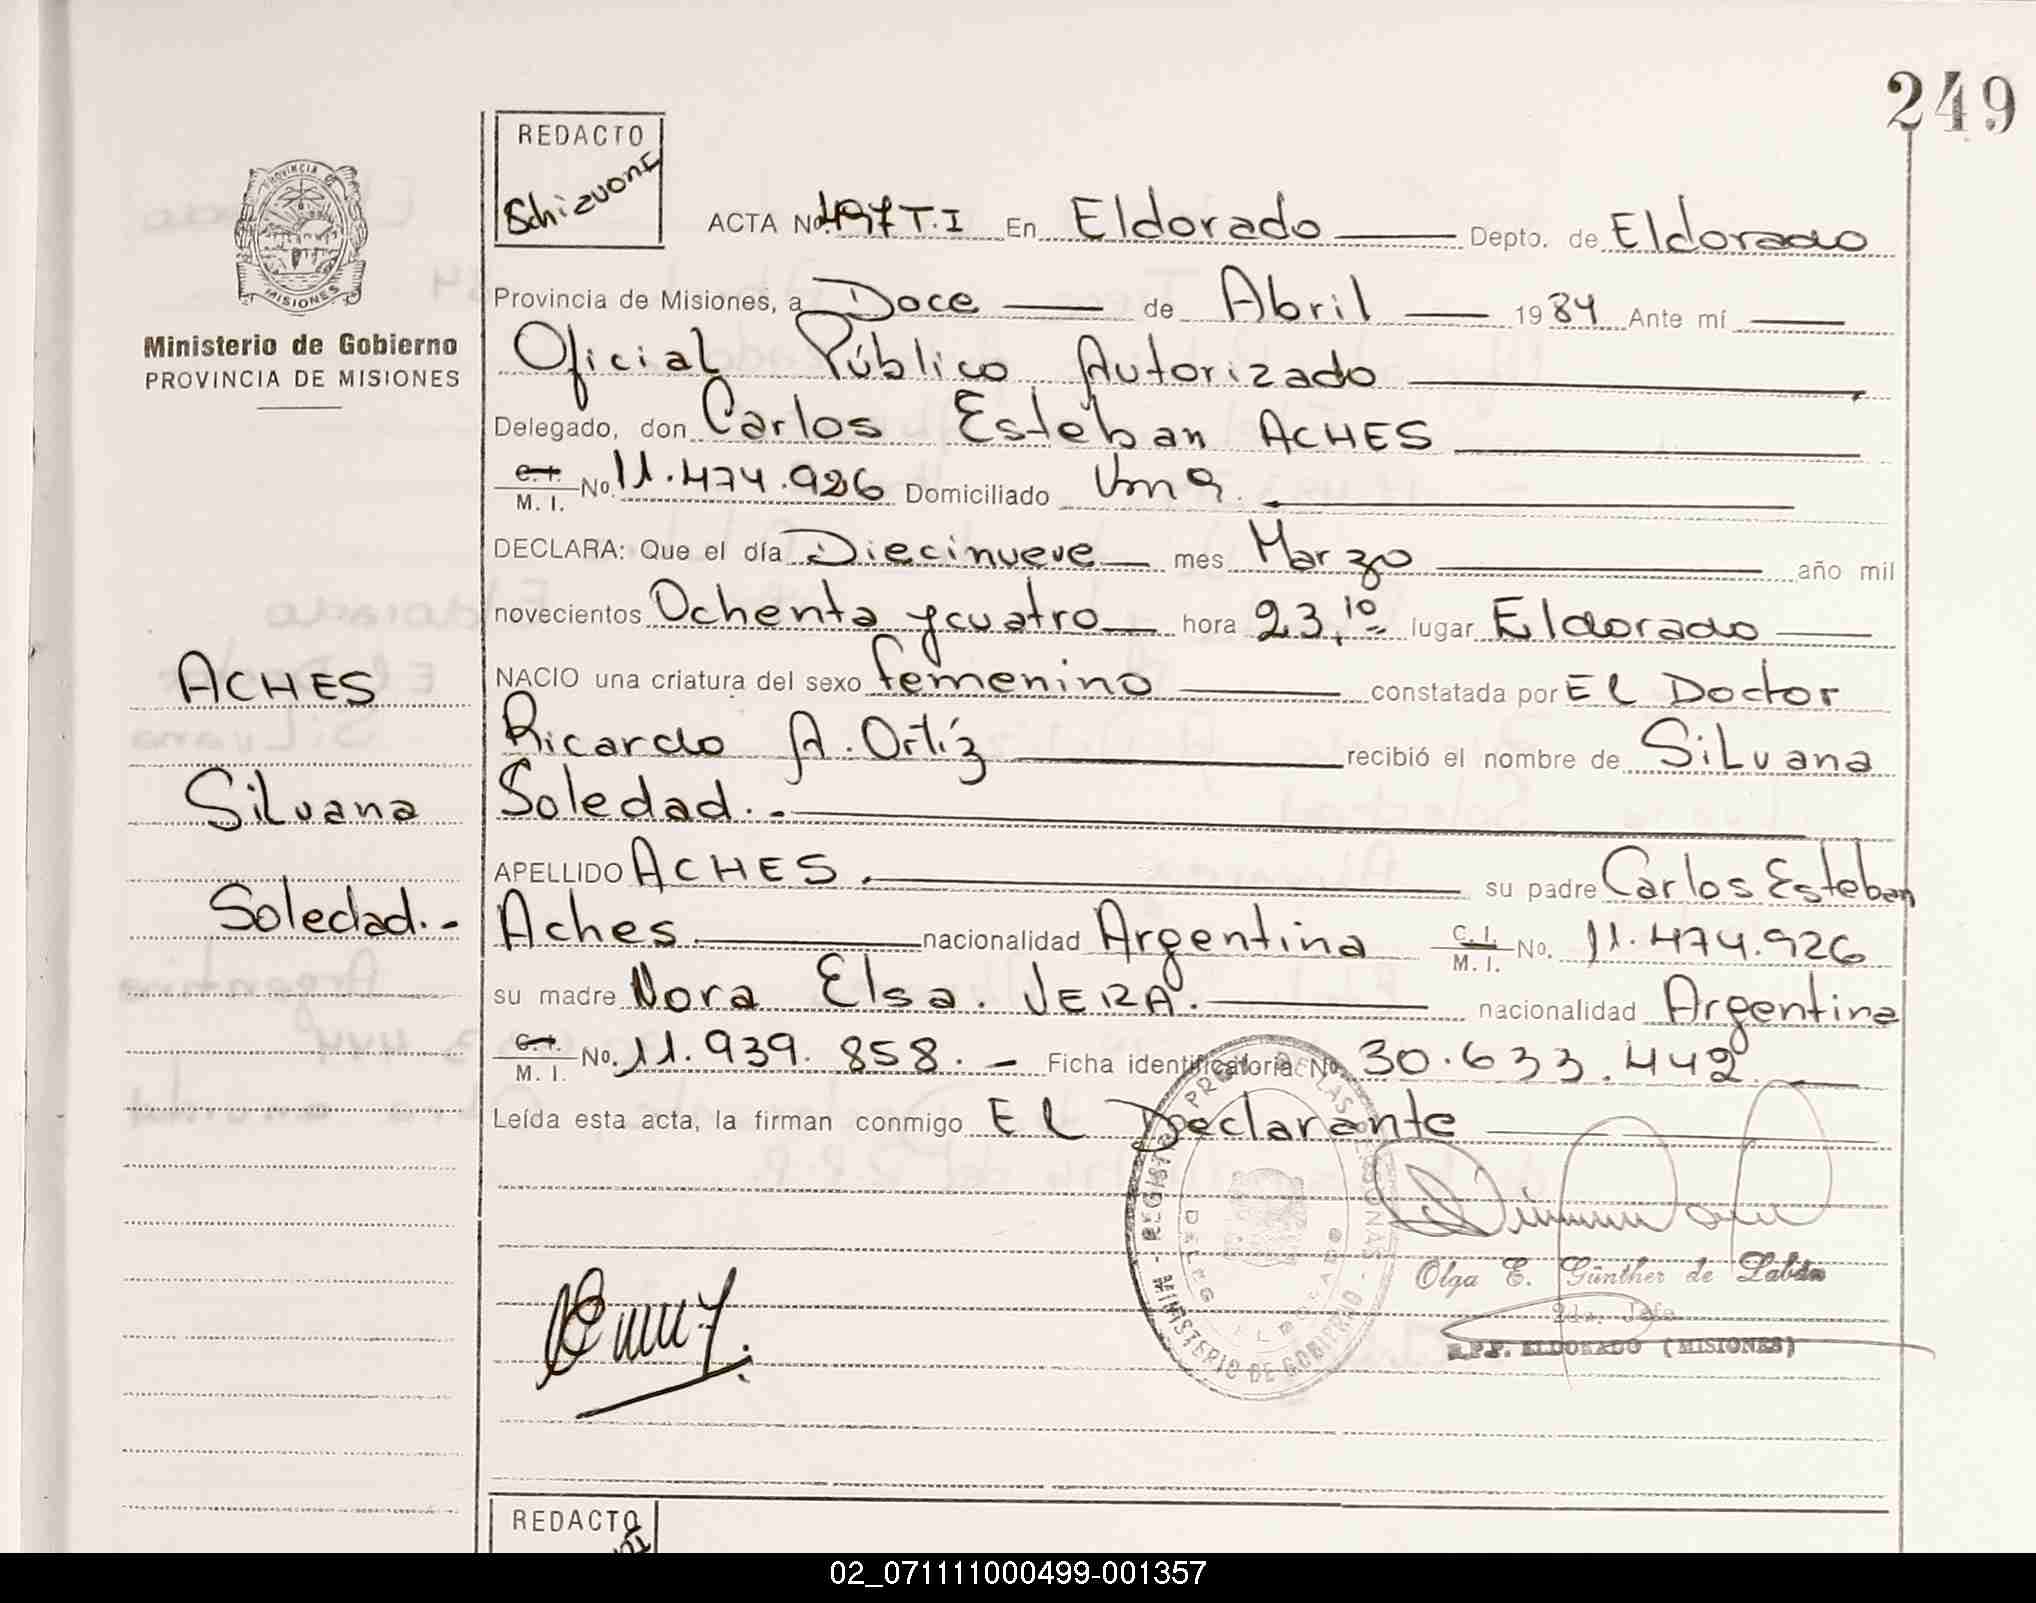 249
REDACTO
Schizuoni
PROVINCIA DE
MISIONES
Ministerio de Gobierno
PROVINCIA DE MISIONES
ACTA No. 497 T.I En Eldorado Depto. de Eldorado
Provincia de Misiones, a Doce de Abril 1984 Ante mí
Oficial Público Autorizado
Delegado, don Carlos Esteban ACHES
C.I. M. I. No. 11.474.926 Domiciliado
DECLARA: Que el día Diecinueve mes Marzo año mil
novecientos Ochenta y cuatro hora 23,10 lugar Eldorado
NACIO una criatura del sexo femenino constatada por El Doctor
Ricardo A. Ortíz recibió el nombre de Silvana
Soledad.-
APELLIDO ACHES. su padre Carlos Esteban
Aches nacionalidad Argentina C.I. M. I. No. 11.474.926
su madre Nora Elsa. VERA. nacionalidad Argentina
C.I. M. I. No. 11.939.858.- Ficha identificatoria No. 30.633.442
Leída esta acta, la firman conmigo El Declarante
ACHES
Silvana
Soledad.-
MINISTERIO DE GOBIERNO - REGISTRO PROV. DE LAS PERSONAS
Olga E. Günther de
2da. Jefe
R.P.P. ELDORADO (MISIONES)
REDACTO
02_071111000499-001357